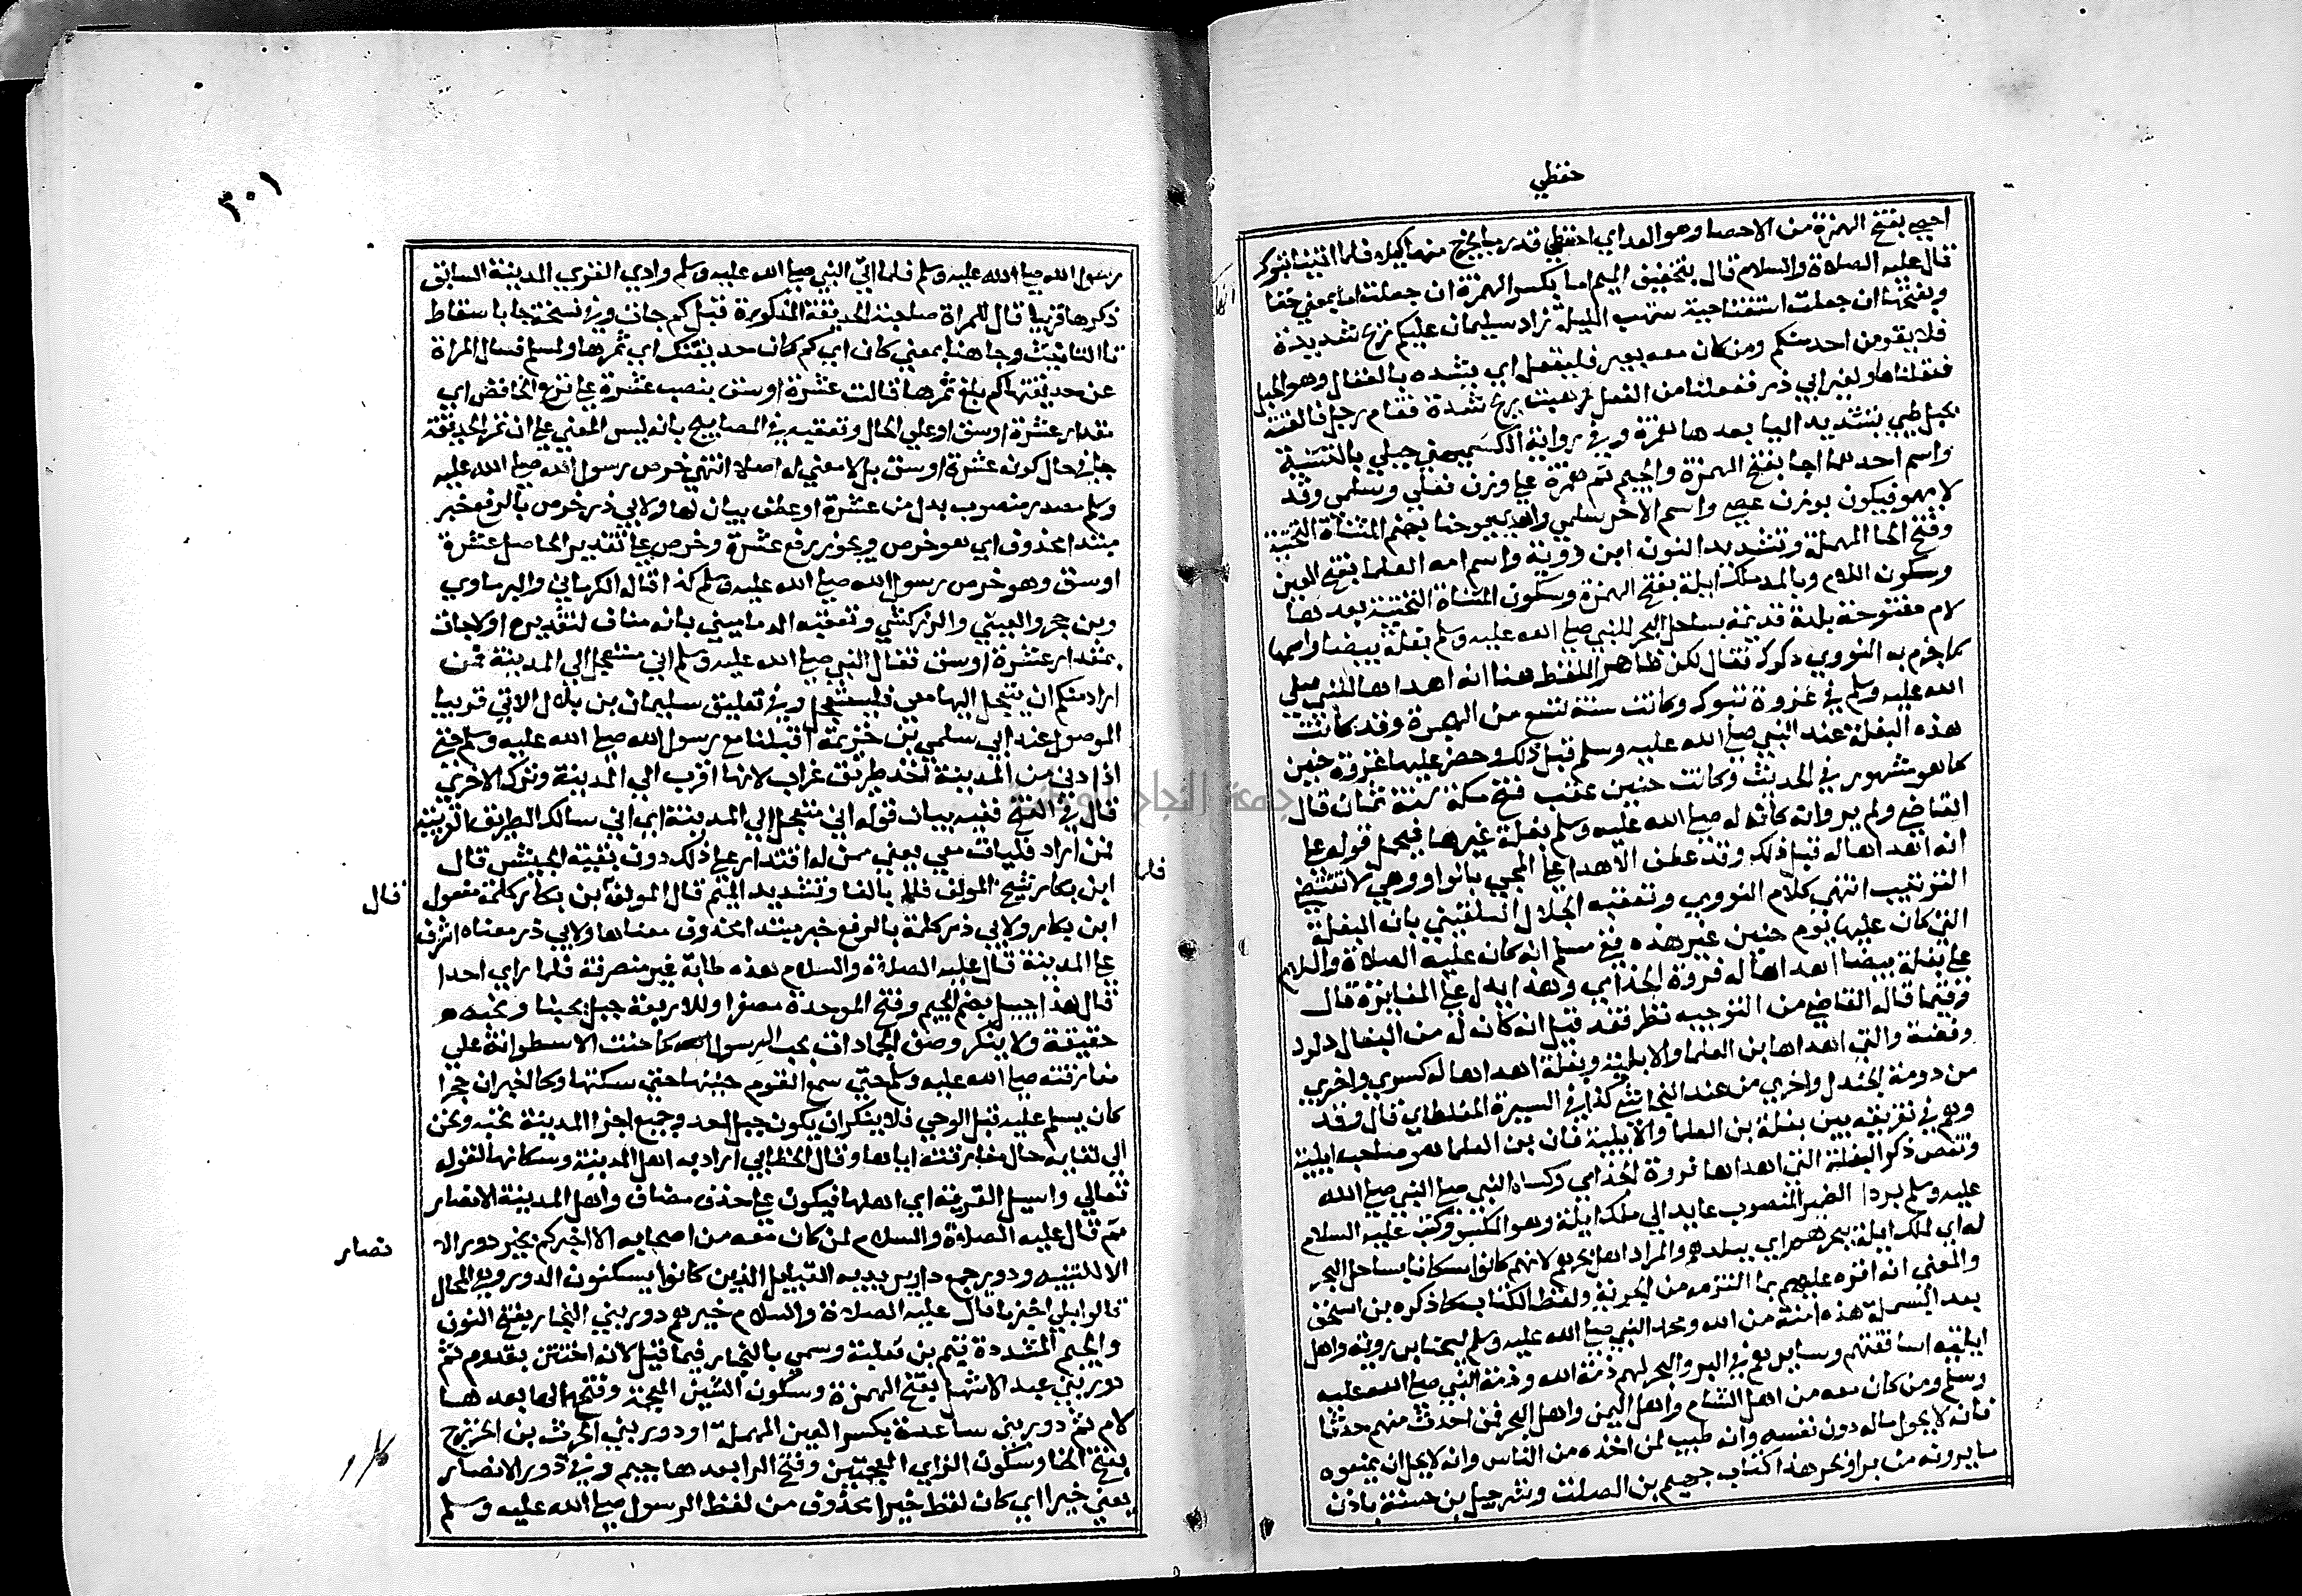 حفظي
احصي بفتح الهمزة من الاحصا وهو العد اي احفظي قدر ما يخرج منها كيلا فلما اتينا تبوك
قال عليه الصلاة والسلام قال بتخفيف الميم اما بكسر الهمزة ان جعلت اما بمعني حقا
وبفتحها ان جعلت استفتاحية ستهب الليلة زاد سليمان عليكم ريح شديدة
فلا يقومن احد منكم ومن كان معه بعير فليعقله اي يشده بالعقال وهو الحبل
فعقلناها ولغير ابي ذر ففعلنا من الفعل وهبت ريح شديدة فقام رجل فالقته
بجبل طي بتشديد اليا بعدها همزة وفي رواية الكشميهني جبلي بالتثنية
واسم احدهما اجا بفتح الهمزة والجيم ثم همزة علي وزن فعلي وسلمي وقد
لا يهمز فيكون بوزن عصي واسم الاخر سلمي واهدي يوحنا بضم المثناة التحتية
وفتح الحا المهملة وتشديد النون ابن روبة واسم امه العلما بفتح العين
وسكون اللام وبالمد ملك ايلة بفتح الهمزة وسكون المثناة التحتية بعدها
لام مفتوحة بلدة قديمة بساحل البحر للنبي صلي الله عليه وسلم بغلة بيضا واسمها
كما جزم به النووي دلدل فقال لكن ظاهر اللفظ هنا انه اهداها للنبي صلي
الله عليه وسلم في غزوة تبوك وكانت سنة تسع من الهجرة وقد كانت
هذه البغلة عند النبي صلي الله عليه وسلم قبل ذلك وحضر عليها غزوة حنين
كما هو مشهور في الحديث وكانت حنين عقب فتح مكة سنة ثمان قال
القاضي ولم يرو انه كانت له صلي الله عليه وسلم بغلة غيرها فيحمل قوله علي
انه اهداها له قبل ذلك وقد عطف الاهدا علي المجي بالواو وهي لا تقتضي
الترتيب انتهي كلام النووي وتعقبه الجلال البلقيني بان البغلة
التي كان عليها يوم حنين غير هذه ففي مسلم انه كان عليه الصلاة والسلام
علي بغلة بيضا اهداها له فروة الجذامي وهذا يدل علي المغايرة قال
وفيما قاله القاضي من التوحيد نظر فقد قيل انه كان له من البغال دلدل
وفضة والتي اهداها بن العلما والايلية وبغلة اهداها له كسري واخري
من دومة الجندل واخري من عند النجاشي كذا في السيرة المغلطاي قال وقد
وهم في تفريقه بين بغلة بن العلما والايلية فان بن العلما هو صاحب ايلة
ونقص ذكر البغلة التي اهداها فروة الجذامي وكساه النبي صلي النبي صلي الله
عليه وسلم بردا الضمير المنصوب عايد الي ملك ايلة وهو المكسو وكتب عليه السلام
له اي لملك ايلة ببحرهم اي ببلدهم والمراد اهل بحرهم لانهم كانوا سكانا بساحل البحر
والمعني انه اقره عليهم بما التزمه من الجزية ولفظ الكتاب كما ذكره بن اسحق
بعد البسملة هذه امنة من الله ومحمد النبي صلي الله عليه وسلم ليحنا بن روبة واهل
ايلة اساقفتهم وسايرهم في البر والبحر لهم ذمة الله وذمة النبي صلي الله عليه
وسلم ومن كان معه من اهل الشام واهل اليمن واهل البحر فمن احدث منهم حدثا
فانه لا يحول ماله دون نفسه وانه طيب لمن اخذه من الناس وانه لا يحل ان يمنعوه
ما يردونه من بر او بحر هذا كتاب جهيم بن الصلت وشرحبيل بن حسنة باذن
٣٠١
رسول الله صلي الله عليه وسلم فلما اتي النبي صلي الله عليه وسلم وادي القري المدينة السابق
ذكرها قريبا قال للمراة صاحبة الحديقة المذكورة قبل كم جات وفي نسخة جا باسقاط
تا التانيث وجا هنا بمعني كان اي كم كان حديقتك اي ثمرها ولمسلم فسال المراة
عن حديقتها كم بلغ ثمرها قالت عشرة اوسق بنصب عشرة علي نزع الخافض اي
بمقدار عشرة اوسق او علي الحال وتعقبه في المصابيح بانه ليس المعني علي ان ثمر الحديقة
جا في حال كونه عشرة اوسق بل لا معني له اصلا انتهي خرص رسول الله صلي الله عليه
وسلم مصدر منصوب بدل من عشرة او عطف بيان لها ولابي ذر خرص بالرفع خبر
مبتدا محذوف اي هو خرص ويجوز رفع عشرة وخرص علي تقدير الحاصل عشرة
اوسق وهو خرص رسول الله صلي الله عليه وسلم كذا قاله الكرماني والبرماوي
وبن حجر والعيني والزركشي وتعقبه الدماميني بانه مناف لتقديره اولا جات
بمقدار عشرة اوسق فقال النبي صلي الله عليه وسلم اني متعجل الي المدينة فمن
اراد منكم ان يتعجل اليها معي فليتعجل وفي تعليق سليمان بن بلال الاتي قريبا
الموصول عند ابي سلمي بن خزيمة اقبلنا مع رسول الله صلي الله عليه وسلم حتي
اذا دني من المدينة اخذ طريق غراب لانها اقرب الي المدينة وترك الاخري
قال في الفتح ففيه بيان قوله اني متعجل الي المدينة اي اني سالك الطريق القريبة
فمن اراد فليات معي يعني ممن له اقتدار علي ذلك دون بقية الجيش قال
فلما
ابن بكار شيخ المولف فلما بالفا وتشديد الميم قال المولف بن بكار كلمة مقول
قال
ابن بكار ولابي ذر كلمة بالرفع خبر مبتدا محذوف معناها ولابي ذر معناه اشرف
علي المدينة قال عليه الصلاة والسلام هذه طابة غير منصرفة فلما راي احدا
قال هذا جبيل بضم الجيم وفتح الموحدة مصغرا وللاربعة جبل يحبنا ونحبه
حقيقة ولا ينكر وصف الجمادات بحب الرسول كما حنت الاسطوانة علي
مفارقته صلي الله عليه وسلم حتي سمع القوم حنينها حتي سكنها وكالخبر ان حجرا
كان يسلم عليه قبل الوحي فلا ينكر ان يكون جبل احد وجميع اجزا المدينة تحبه وتحن
الي لقايه حال مفارقته اياها وقال الخطابي اراد به اهل المدينة وسكانها كقوله
تعالي واسيل القرية اي اهلها فيكون علي حذف مضاف واهل المدينة الانصار
ثم قال عليه الصلاة والسلام لمن كان معه من اصحابه الا اخبركم بخير دور الا
نصار
الا للتنبيه ودور جمع دار يريد به القبايل الذين كانوا يسكنون الدور وهي المحال
قالوا بلي اخبرنا قال عليه الصلاة والسلام خيرهم دور بني النجار بفتح النون
والجيم المشددة تيم بن ثعلبة وسمي بالنجار فيما قيل لانه اختتن بقدوم ثم
دور بني عبد الاشهل بفتح الهمزة وسكون الشين المعجمة وفتح الها بعدها
لام ثم دور بني ساعدة بكسر العين المهملة او دور بني الحرث بن الخزرج
بفتح الخا وسكون الزاي المعجمتين وفتح الرا بعدها جيم وفي دور الانصار
يعني خيرا اي كان لفظ خيرا محذوف من لفظ الرسول صلي الله عليه وسلم
جامعة النجاح الوطنية